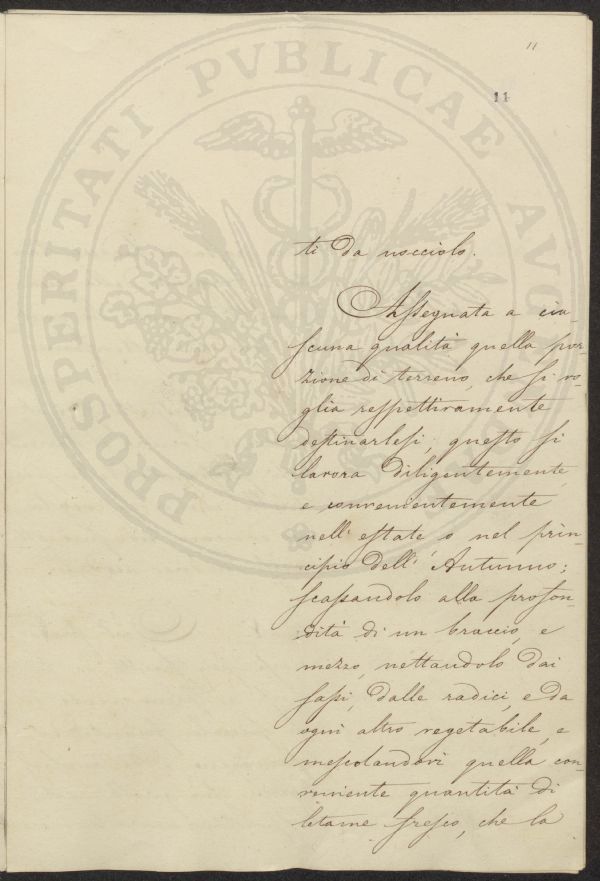 11
11
PROSPERITATI PVBLICAE AVG
ti da nocciolo.
Assegnata a cia-
scuna qualità quella por-
zione di terreno, che si vo-
glia respettivamente
destinarlesi, questo si
lavora diligentemente,
e convenientemente
nell' estate o nel prin-
cipio dell' Autunno;
scassandolo alla profon-
dità di un braccio, e
mezzo, nettandolo dai
sassi, dalle radici, e da
ogni altro vegetabile, e
mescolandovi quella con-
veniente quantità di
letame fresco, che la